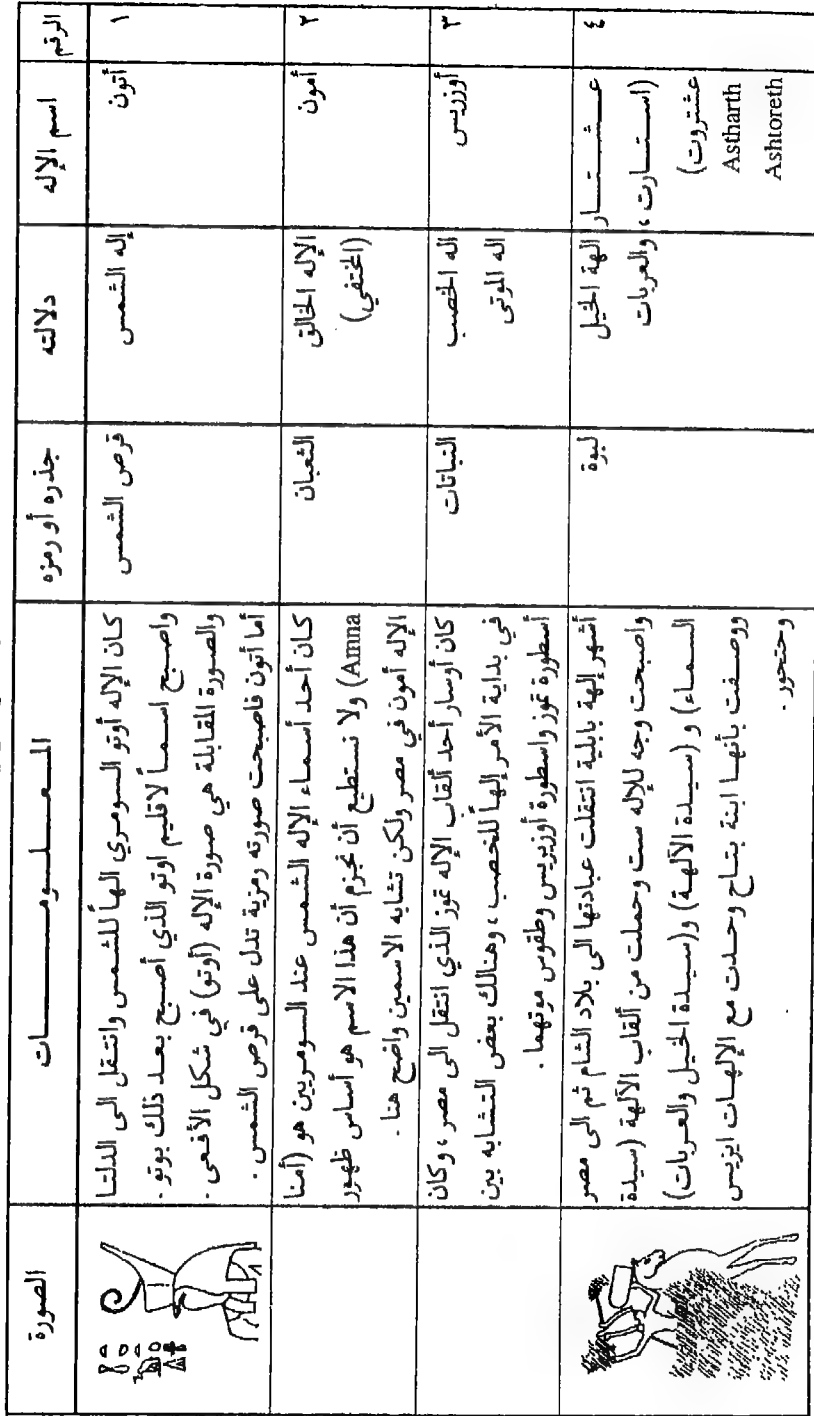 الرقم
اسم الإله
دلالته
جذره أو رمزه
المعلومات
الصورة
١
أتون
إله الشمس
قرص الشمس
كان الإله أوتو السومري الهاً للشمس وانتقل الى الدلتا
واصبح اسماً لاقليم اوتو الذي أصبح بعد ذلك بوتو .
والصورة المقابلة هي صورة الإله (أوتو) في شكل الأفعى .
أما أتون فاصبحت صورته رمزية تدل على قرص الشمس .
٢
أمون
الإله الخالق
(المختفي)
الثعبان
كان أحد أسماء الإله الشمس عند السومريين هو (أمنا
Amna) ولا نستطيع أن نجزم أن هذا الاسم هو أساس ظهور
الإله أمون في مصر ولكن تشابه الاسمين واضح هنا .
٣
أوزريس
اله الخصب
اله الموتى
النباتات
كان أوسار أحد ألقاب الإله تموز الذي انتقل الى مصر ، وكان
في بداية الأمر إلهاً للخصب ، وهنالك بعض التشابه بين
أسطورة تموز واسطورة أوزيريس وطقوس موتهما .
٤
عشتار
(استارت ،
عشتروت)
Astharth
Ashtoreth
الهة الخيل
والعربات
لبوة
أشهر إلهة بابلية انتقلت عبادتها الى بلاد الشام ثم الى مصر
واصبحت وجه للاله ست وحملت من ألقاب الآلهة (سيدة
السماء) و (سيدة الآلهة) و(سيدة الخيل والعربات)
ووصفت بأنها ابنة بتاح وحدت مع الإلهات ايزيس
وحتحور .